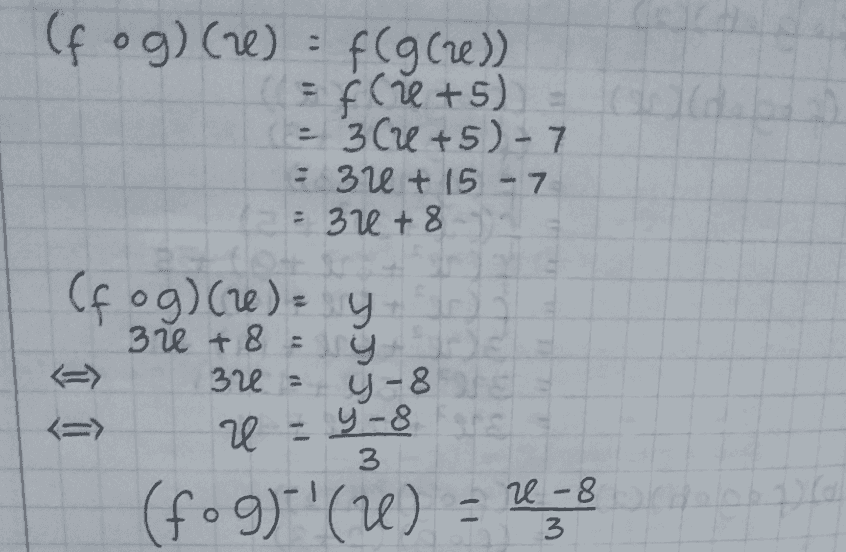 (f ∘ g)(x) = f(g(x))
= f(x + 5)
= 3(x + 5) - 7
= 3x + 15 - 7
= 3x + 8
(f ∘ g)(x) = y
3x + 8 = y
⇔ 3x = y - 8
⇔ x = (y - 8)/3
(f ∘ g)⁻¹(x) = (x - 8)/3